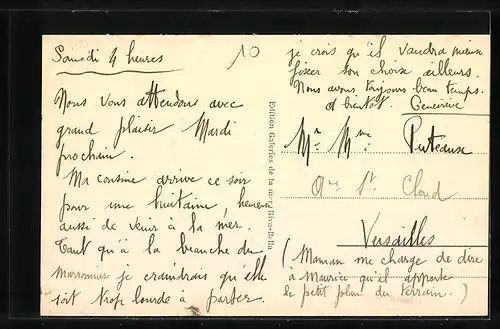 Samedi 4 heures
Nous vous attendons avec
grand plaisir Mardi
prochain.
Ma cousine arrive ce soir
pour une huitaine, heureuse
aussi de venir à la mer.
Tant qu'à la branche du
marronnier je craindrais qu'elle
soit trop lourde à porter.
10
je crois qu'il vaudra mieux
fixer son choix ailleurs.
Nous avons toujours beau temps.
A bientôt. Geneviève
Edition Galeries de la mer, Riva-Bella
Mr. Mme Puteaux
Ave St. Cloud
Versailles
(Maman me charge de dire
à Maurice qu'il apporte
le petit plan du terrain.)